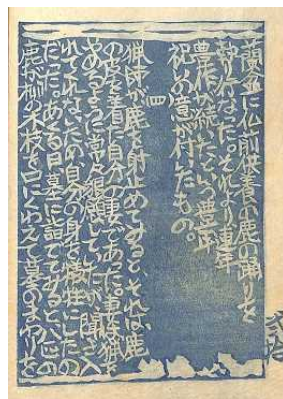 蘭盆に仏前供養の鹿の踊りを
執り行なった。それより連年
豊作が続いたから豊年
祝の意が付いたもの。
四
猟師が鹿を射止めてすると、それは鹿
の皮を着た自分の妻であった。妻は猟を
やめるように常々狼願していたが、聞き入
れてくれないため、自分の身を犠牲にしたの
だった。ある日墓に詣でてすると、八匹の
鹿が柳の木枝を口にくわえて墓のまわりを
弐拾